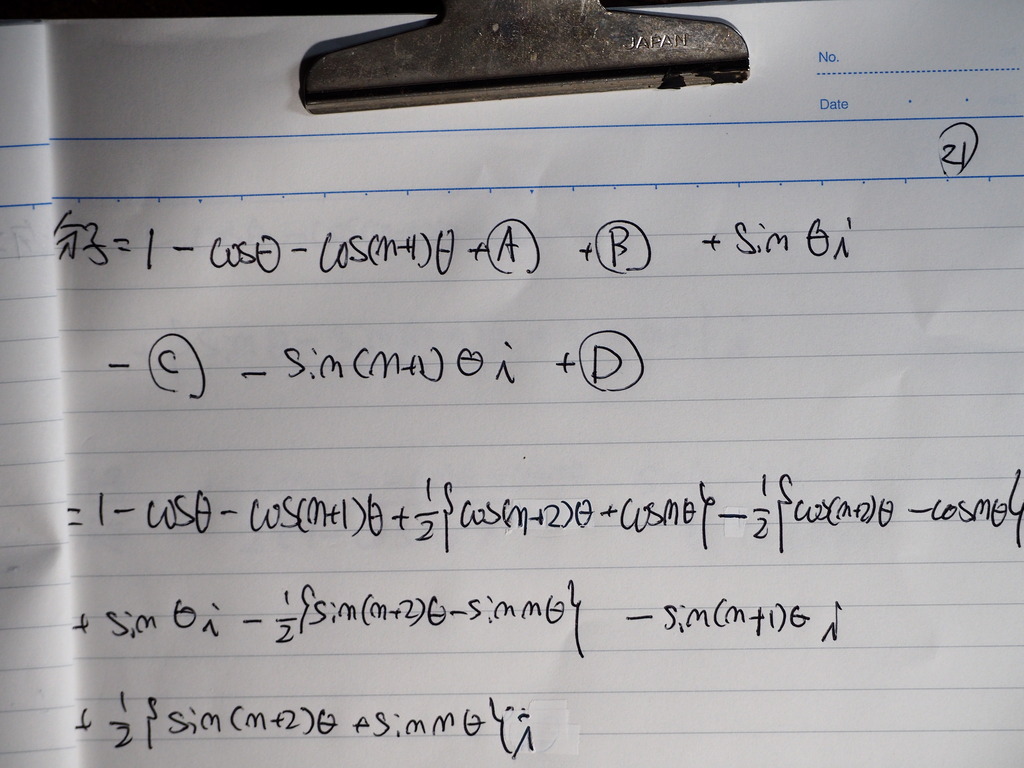 JAPAN
No.
Date
21
分子 = 1 - cosθ - cos(n+1)θ + Ⓐ + Ⓑ + sin θ i
- Ⓒ - sin(n+1) θ i + Ⓓ
= 1 - cosθ - cos(n+1)θ + 1/2 { cos(n+2)θ + cos nθ } - 1/2 { cos(n+2)θ - cos nθ }
+ sin θ i - 1/2 { sin(n+2)θ - sin nθ } - sin(n+1)θ i
+ 1/2 { sin(n+2)θ + sin nθ } i